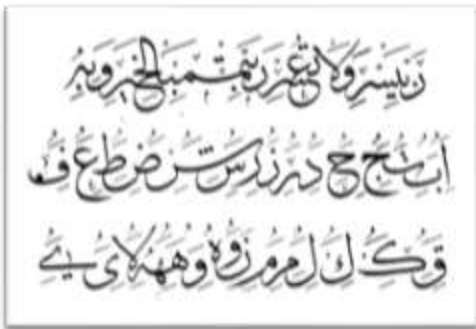 رب يسر ولا تعسر رب تمم بالخير وبه
ا ب ج ح د ر ز س ش ض ط ع ف
ق ك ك ل م م و ه و ه لا ى ے